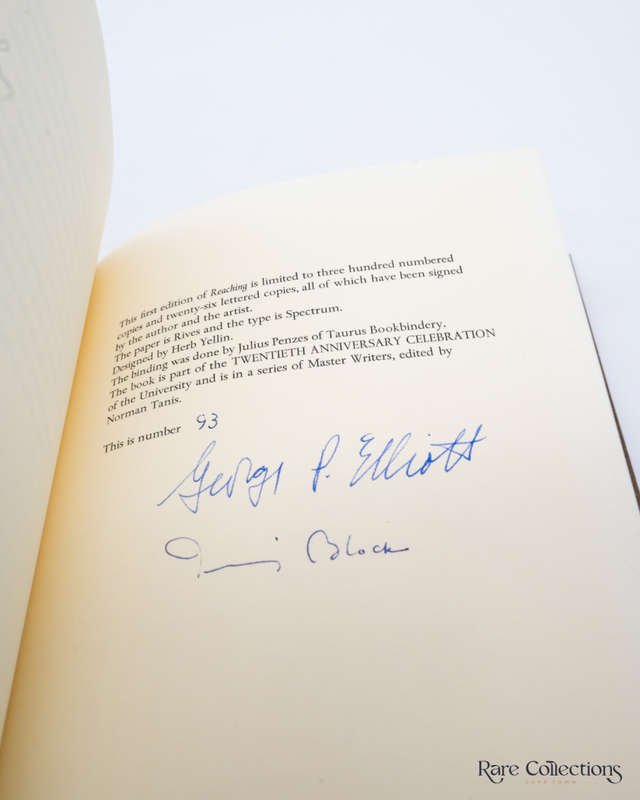 This first edition of Reaching is limited to three hundred numbered
copies and twenty-six lettered copies, all of which have been signed
by the author and the artist.
The paper is Rives and the type is Spectrum.
Designed by Herb Yellin.
The binding was done by Julius Penzes of Taurus Bookbindery.
The book is part of the TWENTIETH ANNIVERSARY CELEBRATION
of the University and is in a series of Master Writers, edited by
Norman Tanis.
This is number 93
George P. Elliott
Block
Rare Collections
CAPE TOWN